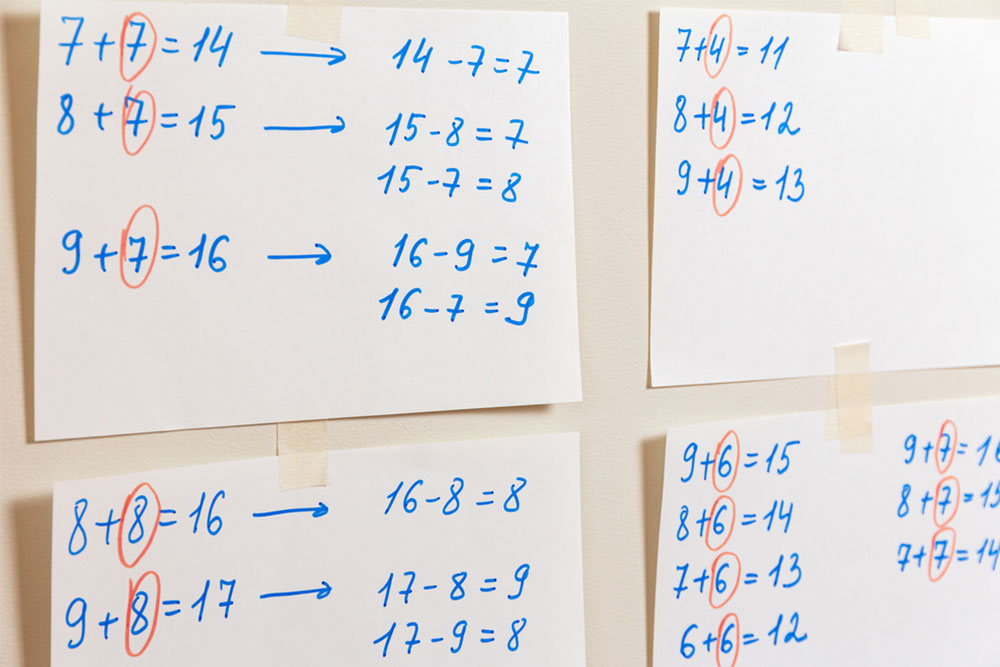 7 + 7 = 14 → 14 - 7 = 7
8 + 7 = 15 → 15 - 8 = 7
15 - 7 = 8
9 + 7 = 16 → 16 - 9 = 7
16 - 7 = 9
7 + 4 = 11
8 + 4 = 12
9 + 4 = 13
8 + 8 = 16 → 16 - 8 = 8
9 + 8 = 17 → 17 - 8 = 9
17 - 9 = 8
9 + 6 = 15
8 + 6 = 14
7 + 6 = 13
6 + 6 = 12
9 + 7 = 16
8 + 7 = 15
7 + 7 = 14